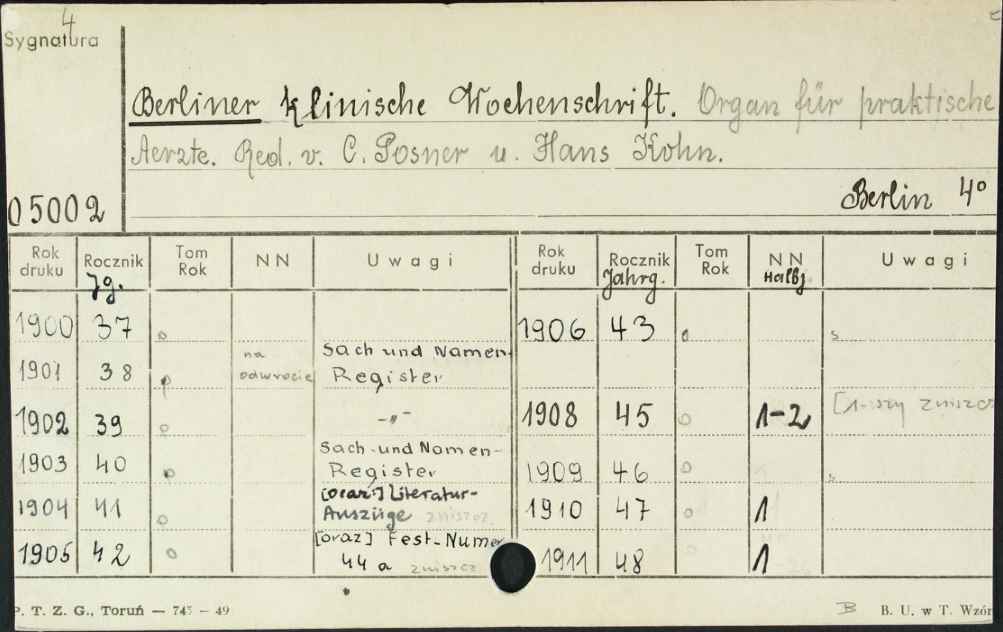 4
Sygnatura
Berliner klinische Wochenschrift. Organ für praktische
Aerzte. Red. v. C. Posner u. Hans Kohn.
05002 Berlin 4°
Rok druku Rocznik Jg. Tom Rok NN Uwagi Rok druku Rocznik Jahrg. Tom Rok NN Halbj. Uwagi
1900 37 1906 43
1901 38 na odwrocie Sach und Namen-Register
1902 39 -"- 1908 45 1-2 [1-szy zniszcz
1903 40 Sach-und Namen-Register 1909 46
1904 41 [oraz] Literatur-Auszüge zniszcz. 1910 47 1
1905 42 [oraz] Fest-Numer 44a zniszcz 1911 48 1
P. T. Z. G., Toruń — 745 — 49 B B. U. w T. Wzór